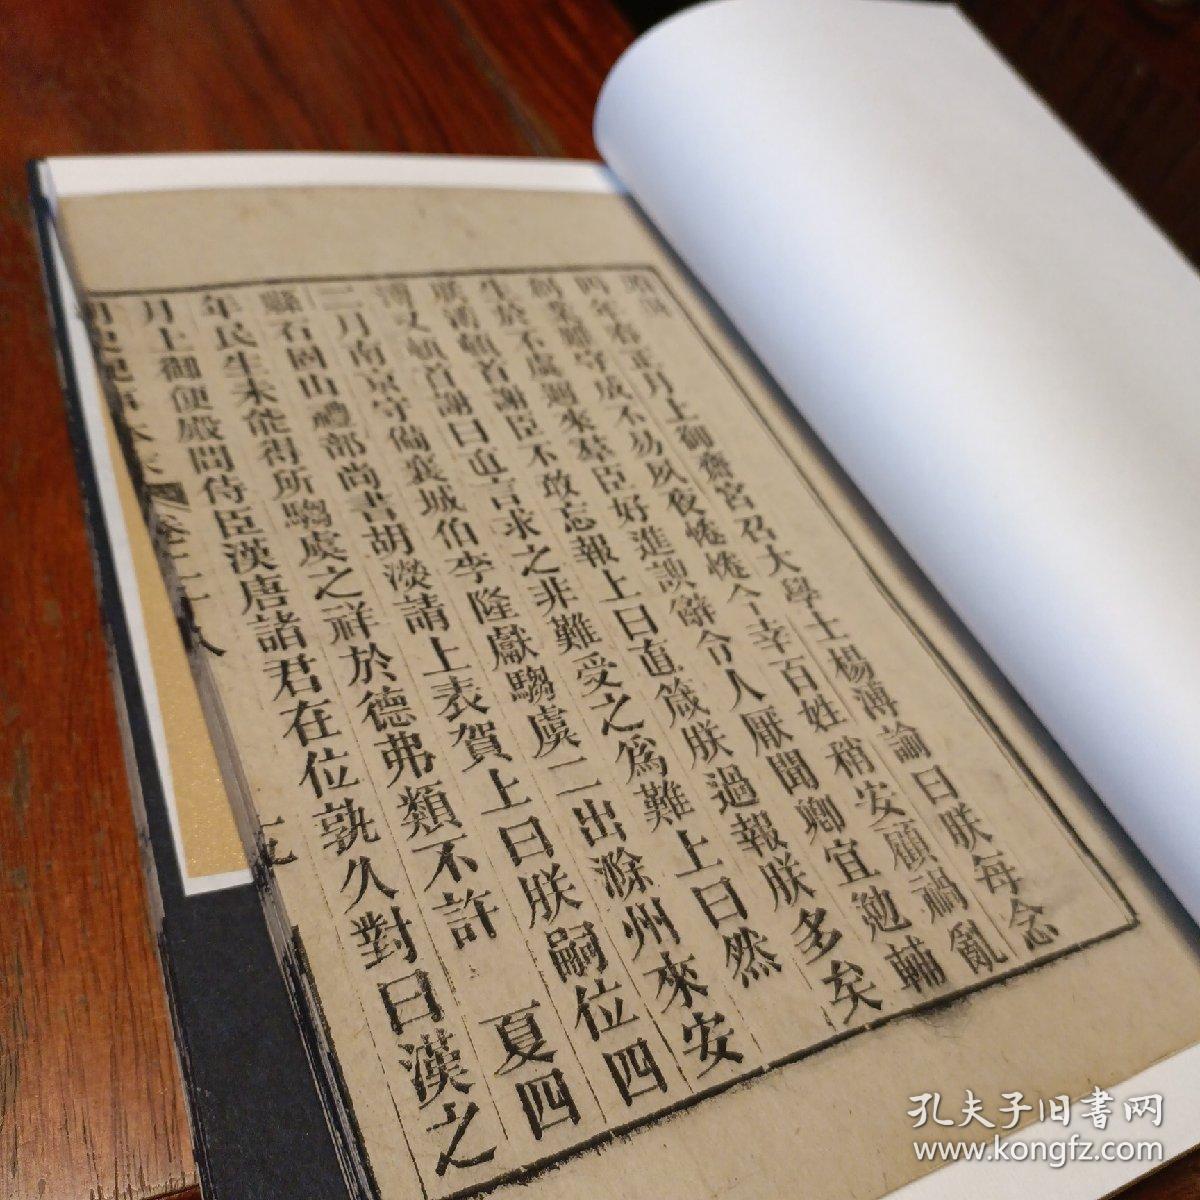 四年春正月上御齋宮召大學士楊溥諭曰朕每念
創業難守成不易夙夜惓惓今幸百姓稍安顧禍亂
生於不虞邇來羣臣好進諛辭令人厭聞卿宜勉輔
朕溥頓首謝臣不敢忘報上曰直箴朕過報朕多矣
溥又頓首謝曰直言求之非難受之爲難上曰然
二月南京守備襄城伯李隆獻騶虞二出滁州來安
縣石固山禮部尚書胡濙請上表賀上曰朕嗣位四
年民生未能得所騶虞之祥於德弗類不許　夏四
月上御便殿問侍臣漢唐諸君在位孰久對曰漢之
明史紀事本末 卷二十八
孔夫子旧书网
www.kongfz.com